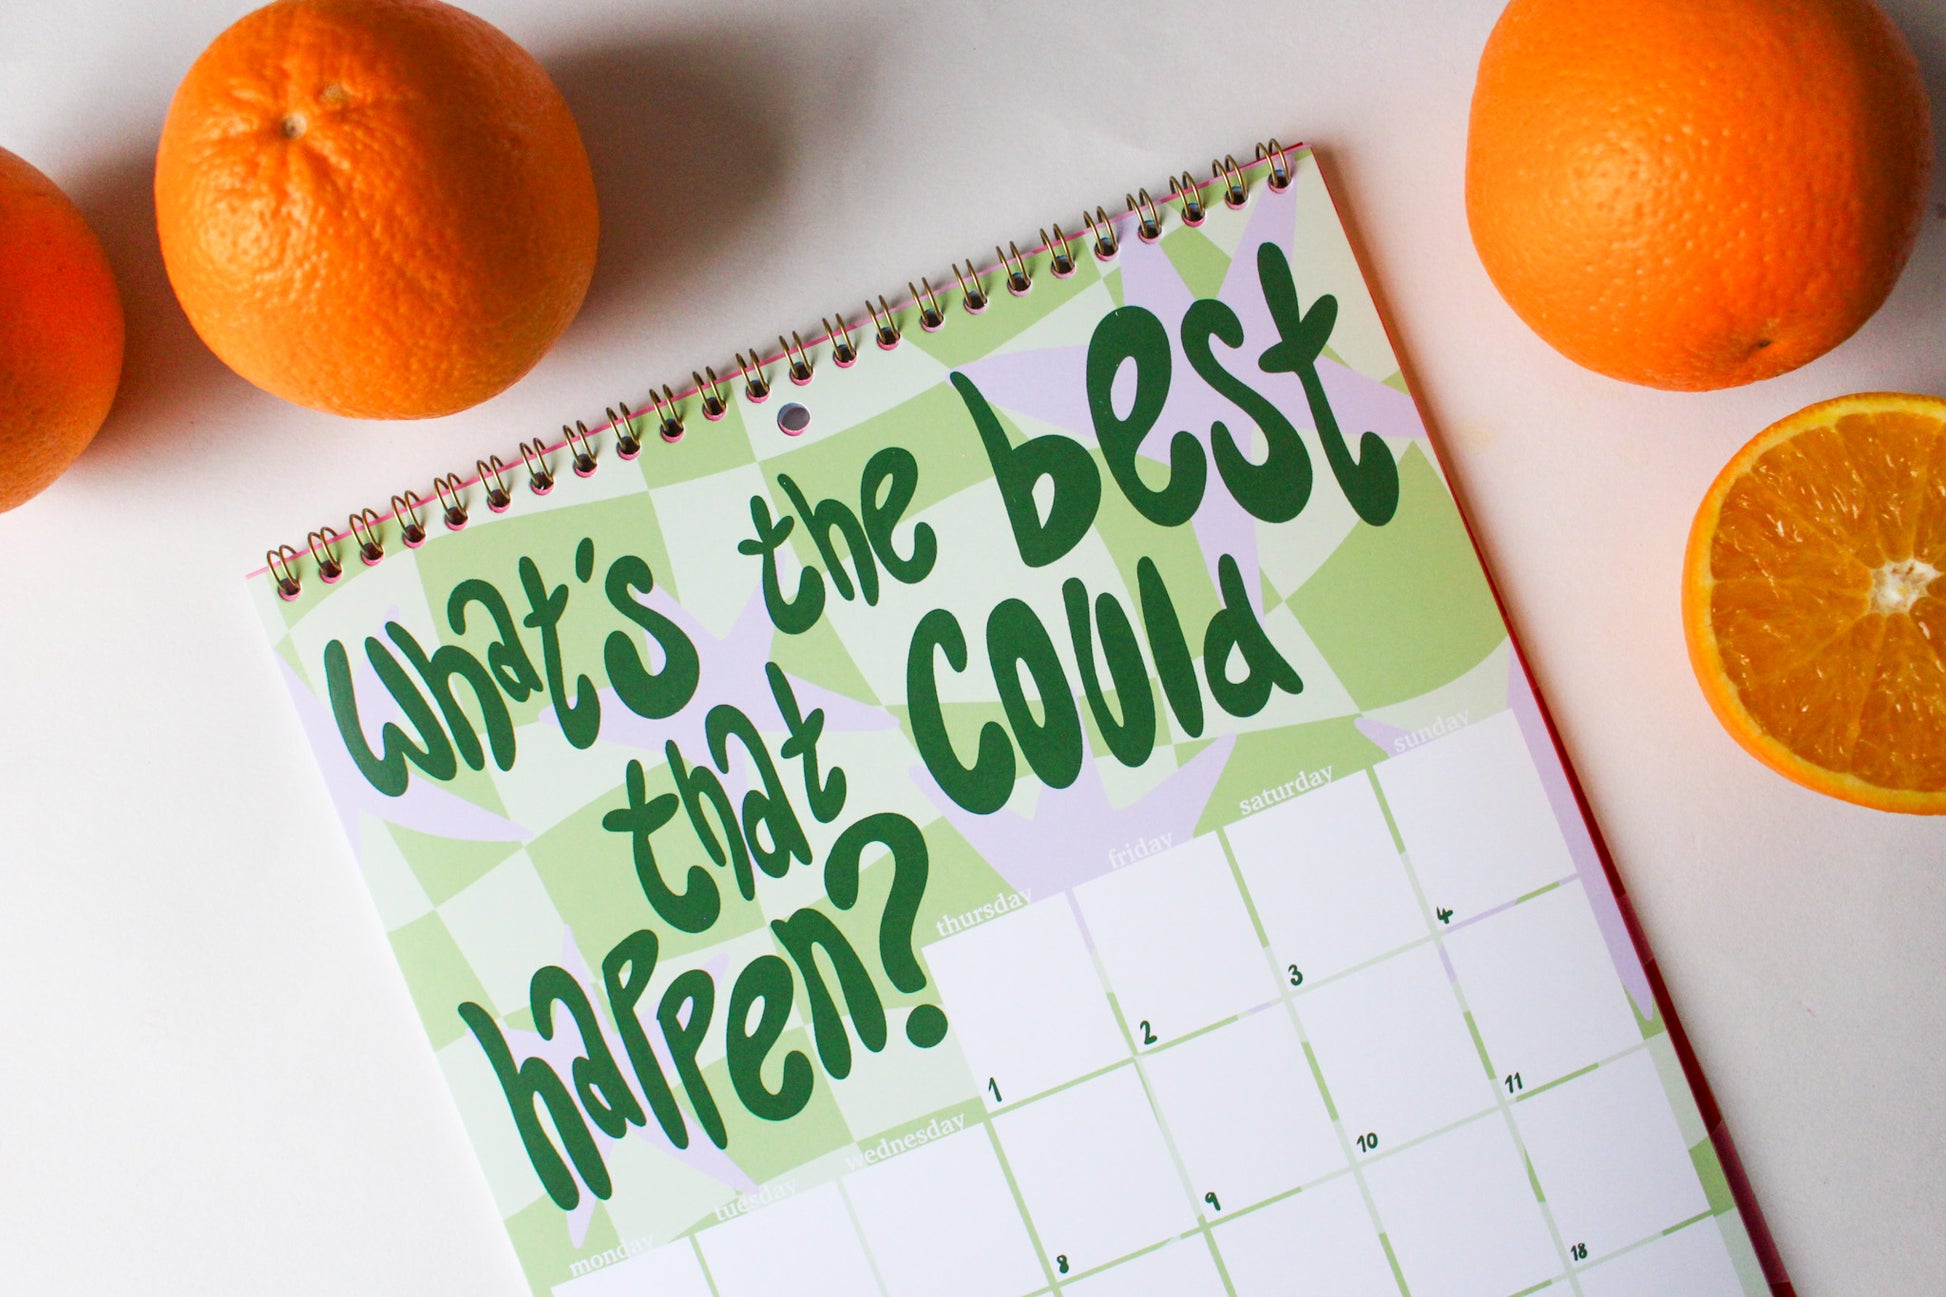 what's the best
that could
happen?
monday tuesday wednesday thursday friday saturday sunday
1 2 3 4
8 9 10 11
18